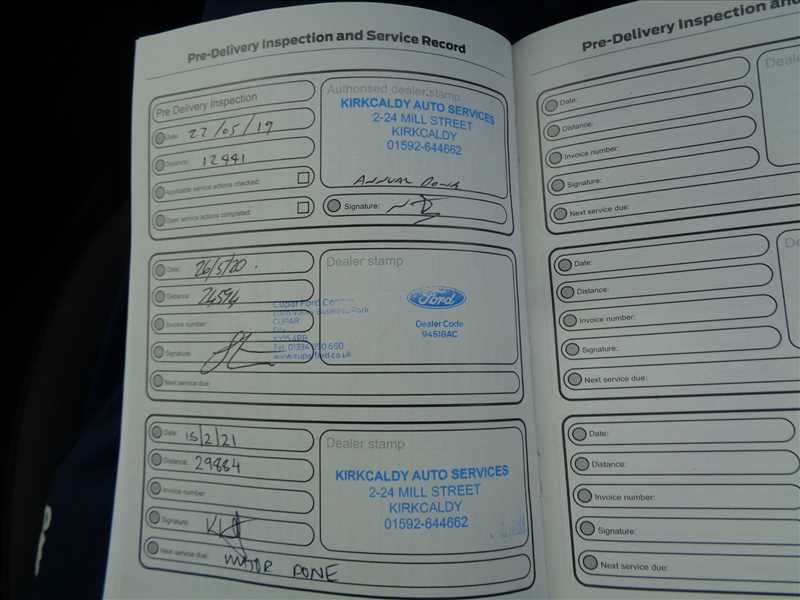 Pre-Delivery Inspection and Service Record
Pre Delivery Inspection
Date: 27/05/19
Distance: 12441
Applicable service actions checked:
Open service actions completed:
Authorised dealer stamp
KIRKCALDY AUTO SERVICES
2-24 MILL STREET
KIRKCALDY
01592-644662
ANNUAL DONE
Signature:
Date: 26/5/20.
Distance: 24594
Invoice number:
Signature:
Next service due:
Cupar Ford
Business Park
CUPAR
Fife
KY15 4RB
Tel: 01334 650 650
www.cuparford.co.uk
Dealer stamp
Ford
Dealer Code
94518AC
Date: 15/2/21
Distance: 29884
Invoice number:
Signature:
Next service due: MAJOR DONE
Dealer stamp
KIRKCALDY AUTO SERVICES
2-24 MILL STREET
KIRKCALDY
01592-644662
Pre-Delivery Inspection an
Date:
Distance:
Invoice number:
Signature:
Next service due:
Date:
Distance:
Invoice number:
Signature:
Next service due:
Date:
Distance:
Invoice number:
Signature:
Next service due: